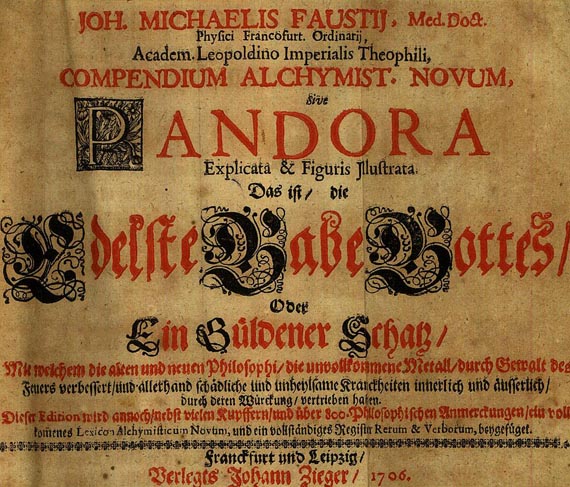 JOH. MICHAELIS FAUSTIJ, Med. Doct.
Physici Francofurt. Ordinarij,
Academ. Leopoldino Imperialis Theophili,
COMPENDIUM ALCHYMIST. NOVUM,
sive
PANDORA
Explicata & Figuris Jllustrata.
Das ist / die
Edelste Gabe Gottes /
Oder
Ein Güldener Schatz /
Mit welchem die alten und neuen Philosophi / die unvollkommene Metall / durch Gewalt des
Feuers verbessert / und allerhand schädliche und unheylsame Kranckheiten innerlich und äusserlich /
durch deren Würckung / vertrieben haben.
Dieser Edition wird annoch / nebst vielen Kupffern / und über 800. Philosophischen Anmerckungen / ein voll
komenes Lexicon Alchymisticum Novum, und ein vollständiges Register Rerum & Verborum, beygefüget.
Franckfurt und Leipzig /
Verlegts Johann Zieger / 1706.